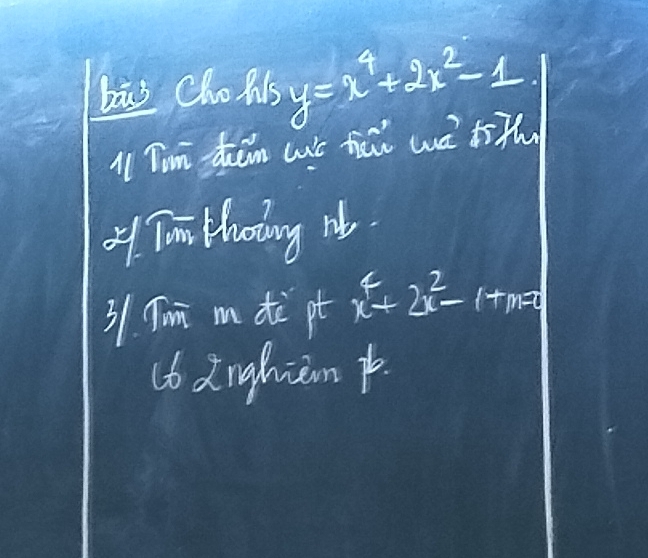 bài3 Cho h/s y = x⁴ + 2x² - 1.
1/ Tìm điểm cực tiểu của đồ thị
2/ Tìm khoảng nb.
3/ Tìm m để pt x⁴ + 2x² - 1 + m = 0
Có 2 nghiệm pb.